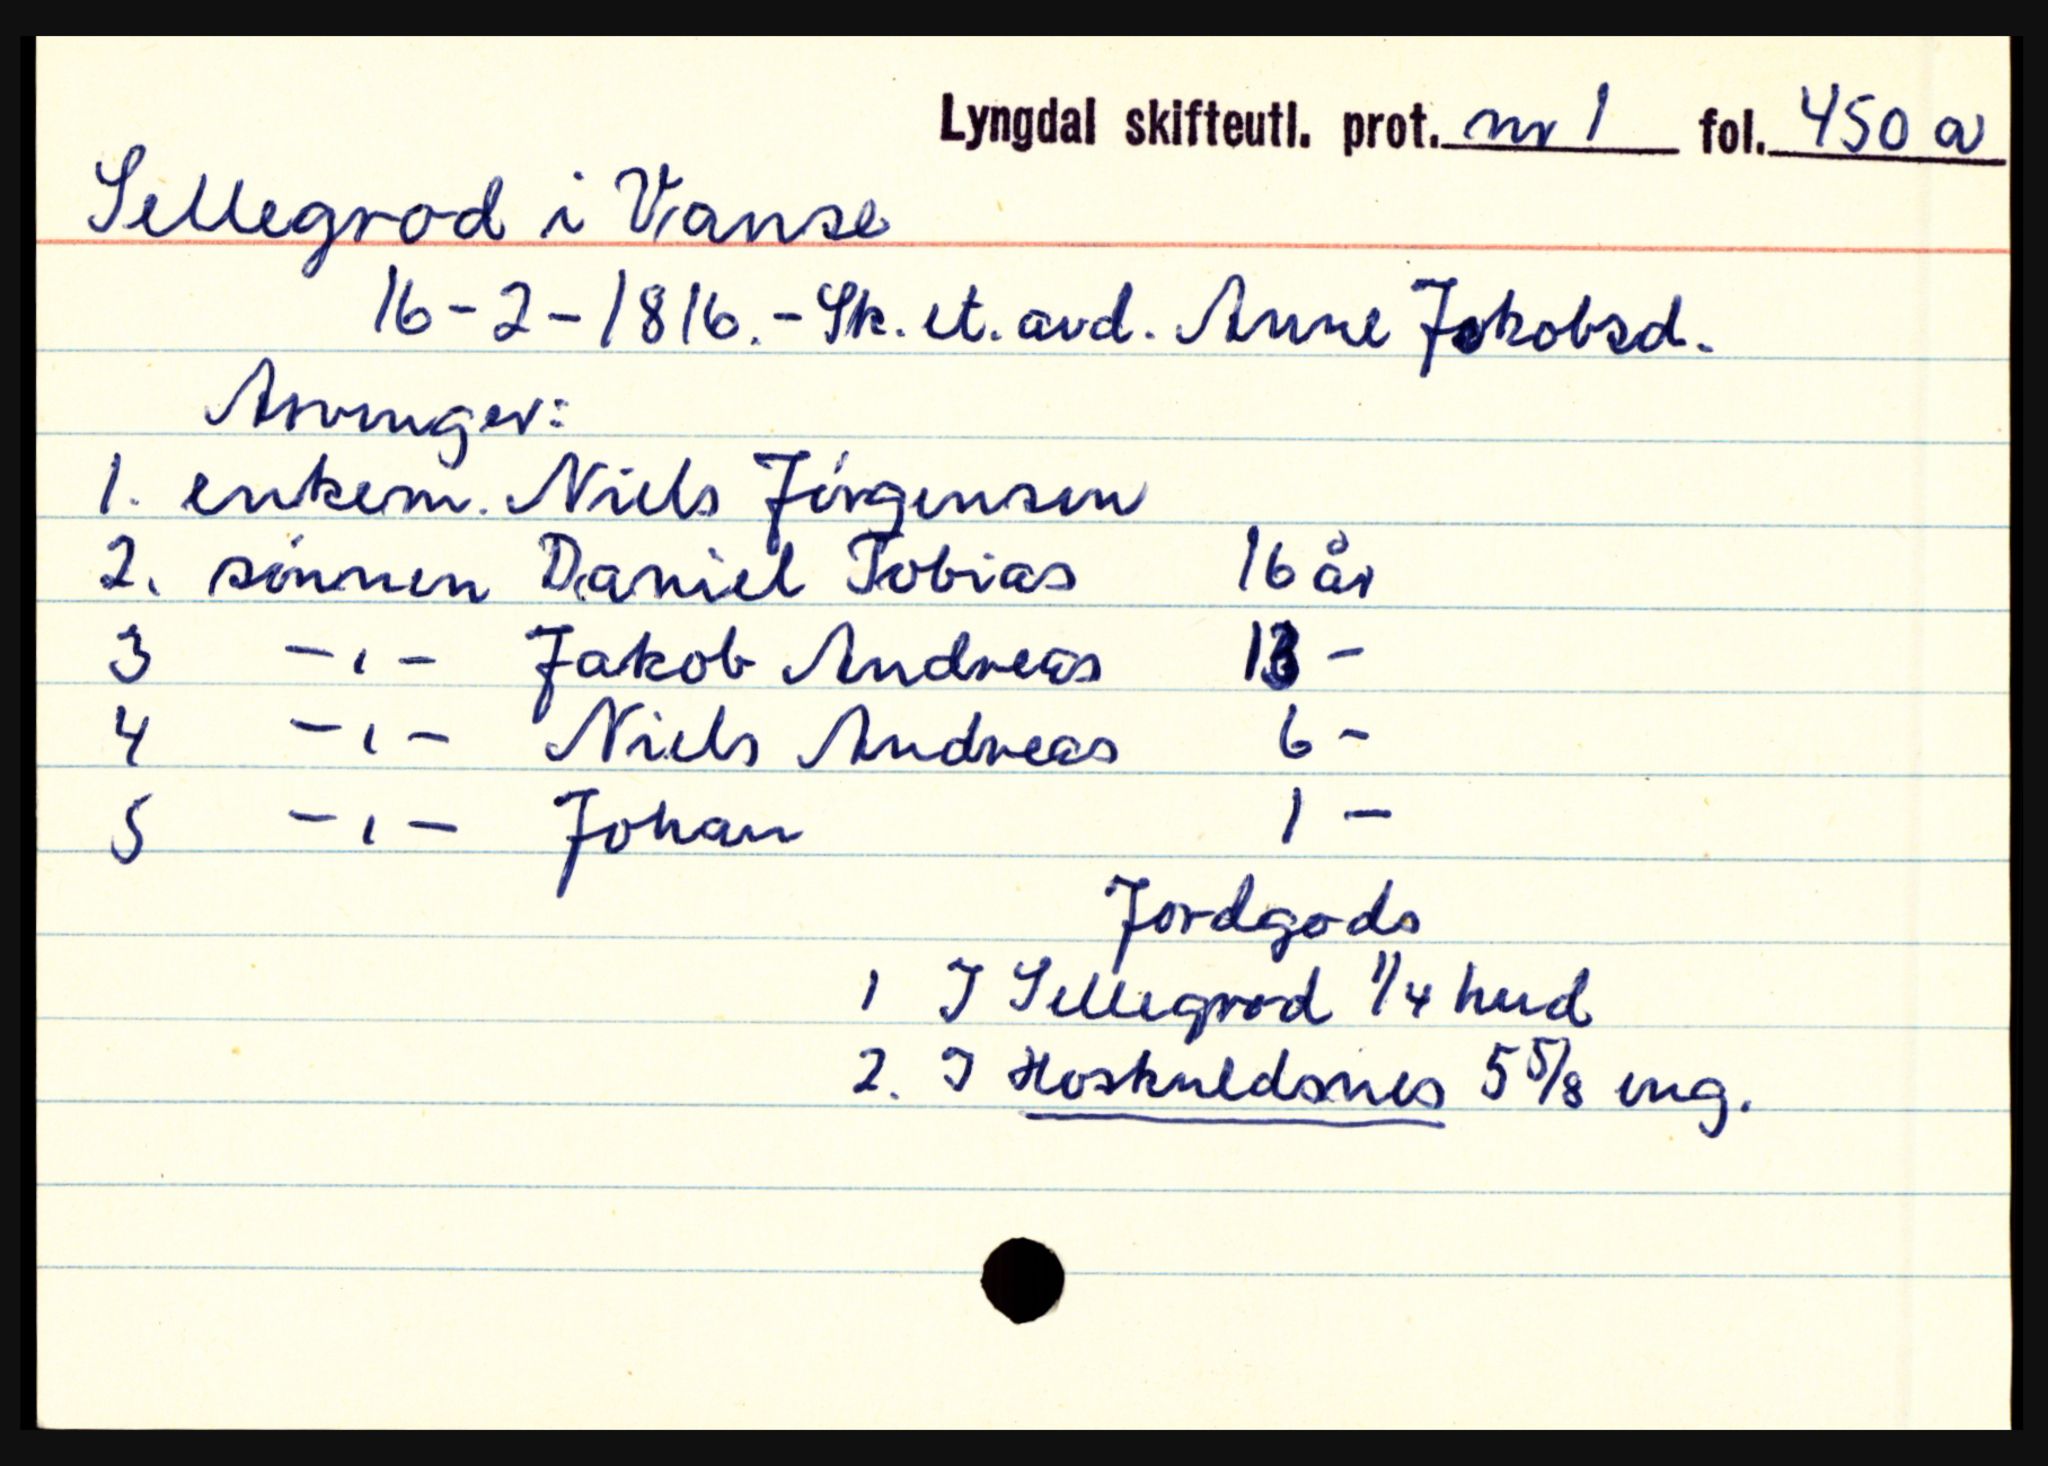 Lyngdal skifteutl. prot. nr 1 fol. 450 a
Sellegrod i Vanse
16-2-1816. - Sk. et. avd. Anne Jakobsd.
Arvinger:
1. enkem. Niels Jörgensen
2. sönnen Daniel Tobias 16 år
3 -ı- Jakob Andreas 13 -
4 -ı- Niels Andreas 6 -
5 -ı- Johan 1 -
Jordgods
1 I Sellegrod 1/4 hud
2. I Hoskuldsnes 5 5/8 eng.